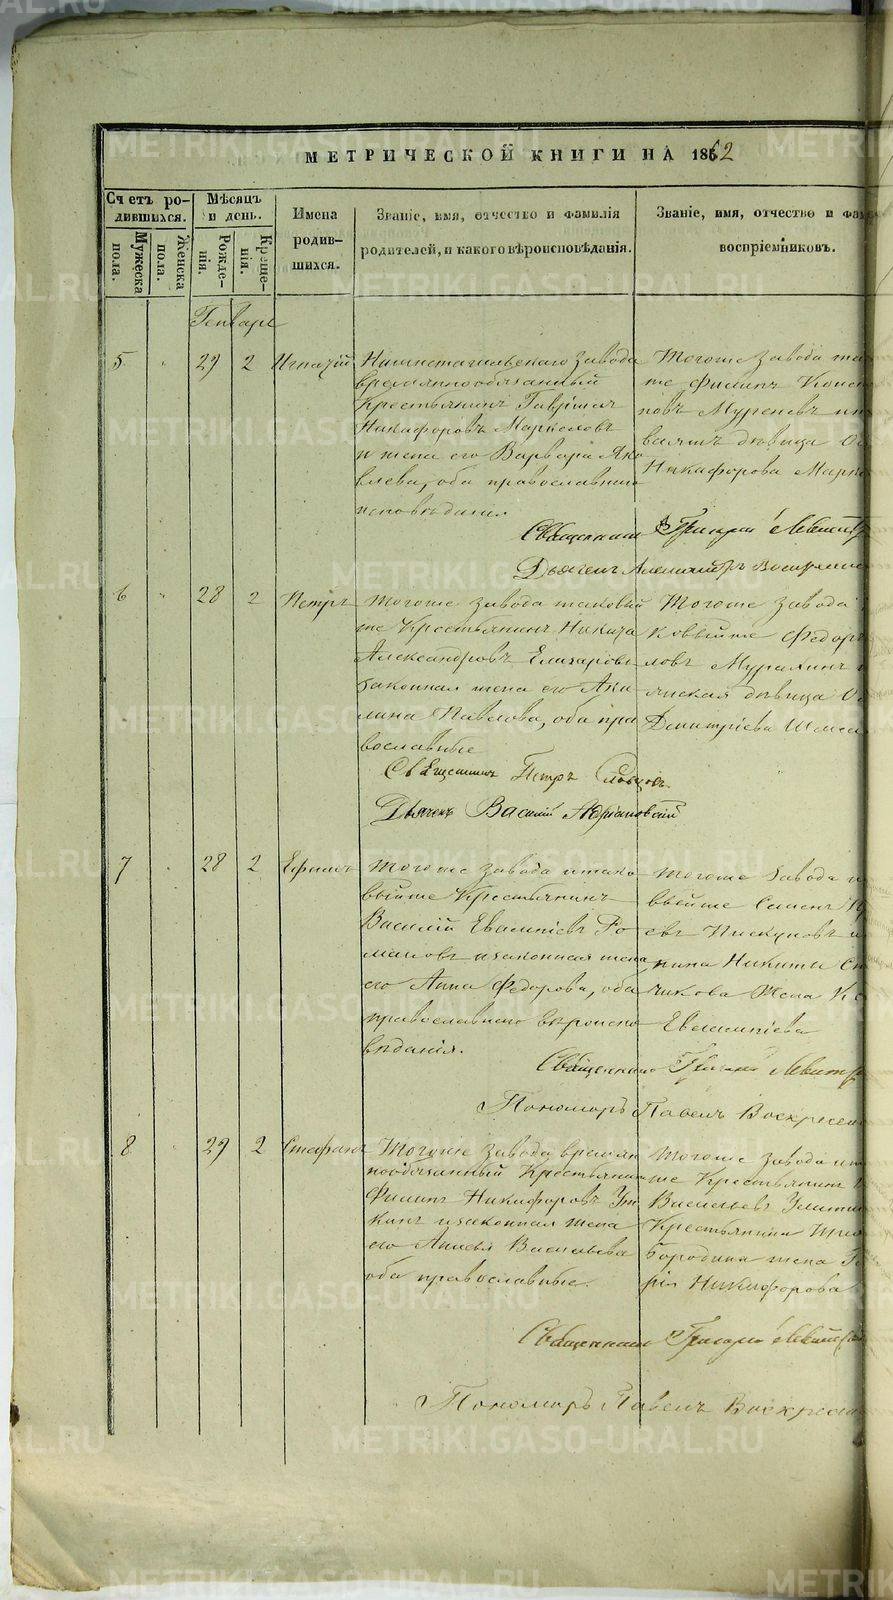 МЕТРИЧЕСКОЙ КНИГИ НА 1862
Счетъ ро-
дившихся.
Мѣсяцъ
и день.
Имена
родив-
шихся.
Званіе, имя, отчество и фамилія
родителей, и какого вѣроисповѣданія.
Званіе, имя, отчество и фам
воспріемниковъ.
Мужеска
пола.
Женска
пола.
Рожде-
нія.
Креще-
нія.
Генварь
5 29 2 Игнатій
Нижнетагильскаго завода
временнообязанный
крестьянинъ Гавріилъ
Никифоровъ Маркеловъ
и жена его Варвара Яко
влева, оба православнаго
исповѣданія
Тогоже завода та
же Филипъ
новъ
дѣвица
Никифорова Марк
Священникъ Григорій Левит
Дьяконъ Александръ Воскресенс
6 28 2 Петръ
Тогоже завода таковый
же Крестьянинъ Никита
Александровъ Елизаровъ
законная жена его Аку
лина Павлова, оба пра
вославные
Тогоже завода
ковыйже Федоръ
ловъ
дѣвица
Димитріева
Священникъ Петръ Словцовъ
Дьячекъ Василій Адріановскій
7 28 2 Ефимъ
Тогоже завода итако
выйже Крестьянинъ
Василій Евлампіевъ Ро
мановъ изаконная жена
его Анна Федорова, оба
православнаго вѣроиспо
вѣданія.
Тогоже завода и
выйже Семенъ
евъ Пискуновъ и
нина Никиты
чикова жена
Евлампіева
Священникъ Григорій Левит
Пономарь Павелъ Воскресен
8 29 2 Стефанъ
Тогоже завода времян
нообязанный Крестьянинъ
Филипъ Никифоровъ Ут
кинъ изаконная жена
его Анисья Васильева
оба православные.
Тогоже завода ит
же Крестьянинъ
Васильевъ
Крестьянина
бородина жена
рія Никифорова
Священникъ Григорій Левит
Пономарь Павелъ Воскресен
METRIKI.GASO-URAL.RU